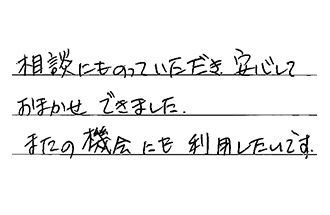 相談にものっていただき 安心して
おまかせ できました.
またの機会にも 利用したいです.